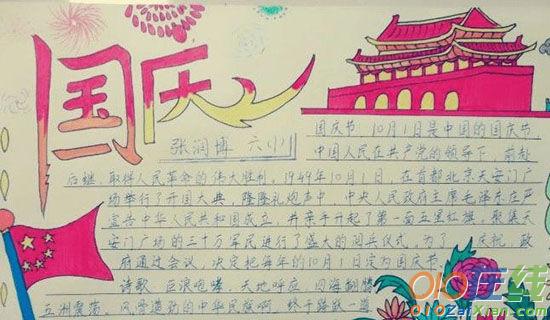 国庆
张润博 六(1)
国庆节,10月1日是中国的国庆节,
中国人民在共产党的领导下,前赴
后继,取得人民革命的伟大胜利,1949年10月1日,在首都北京天安门广
场举行了开国大典,隆隆礼炮声中,中央人民政府主席毛泽东庄严
宣告中华人民共和国成立,并亲手升起了第一面五星红旗,聚集天
安门广场的三十万军民进行了盛大的阅兵仪式,为了庆祝,政
府通过会议,决定把每年的10月1日定为国庆节.
诗歌 巨浪咆哮,天地呼应,四海翻腾
五洲震荡,风雷激动的中华民族啊
在线
ZaiXian.com